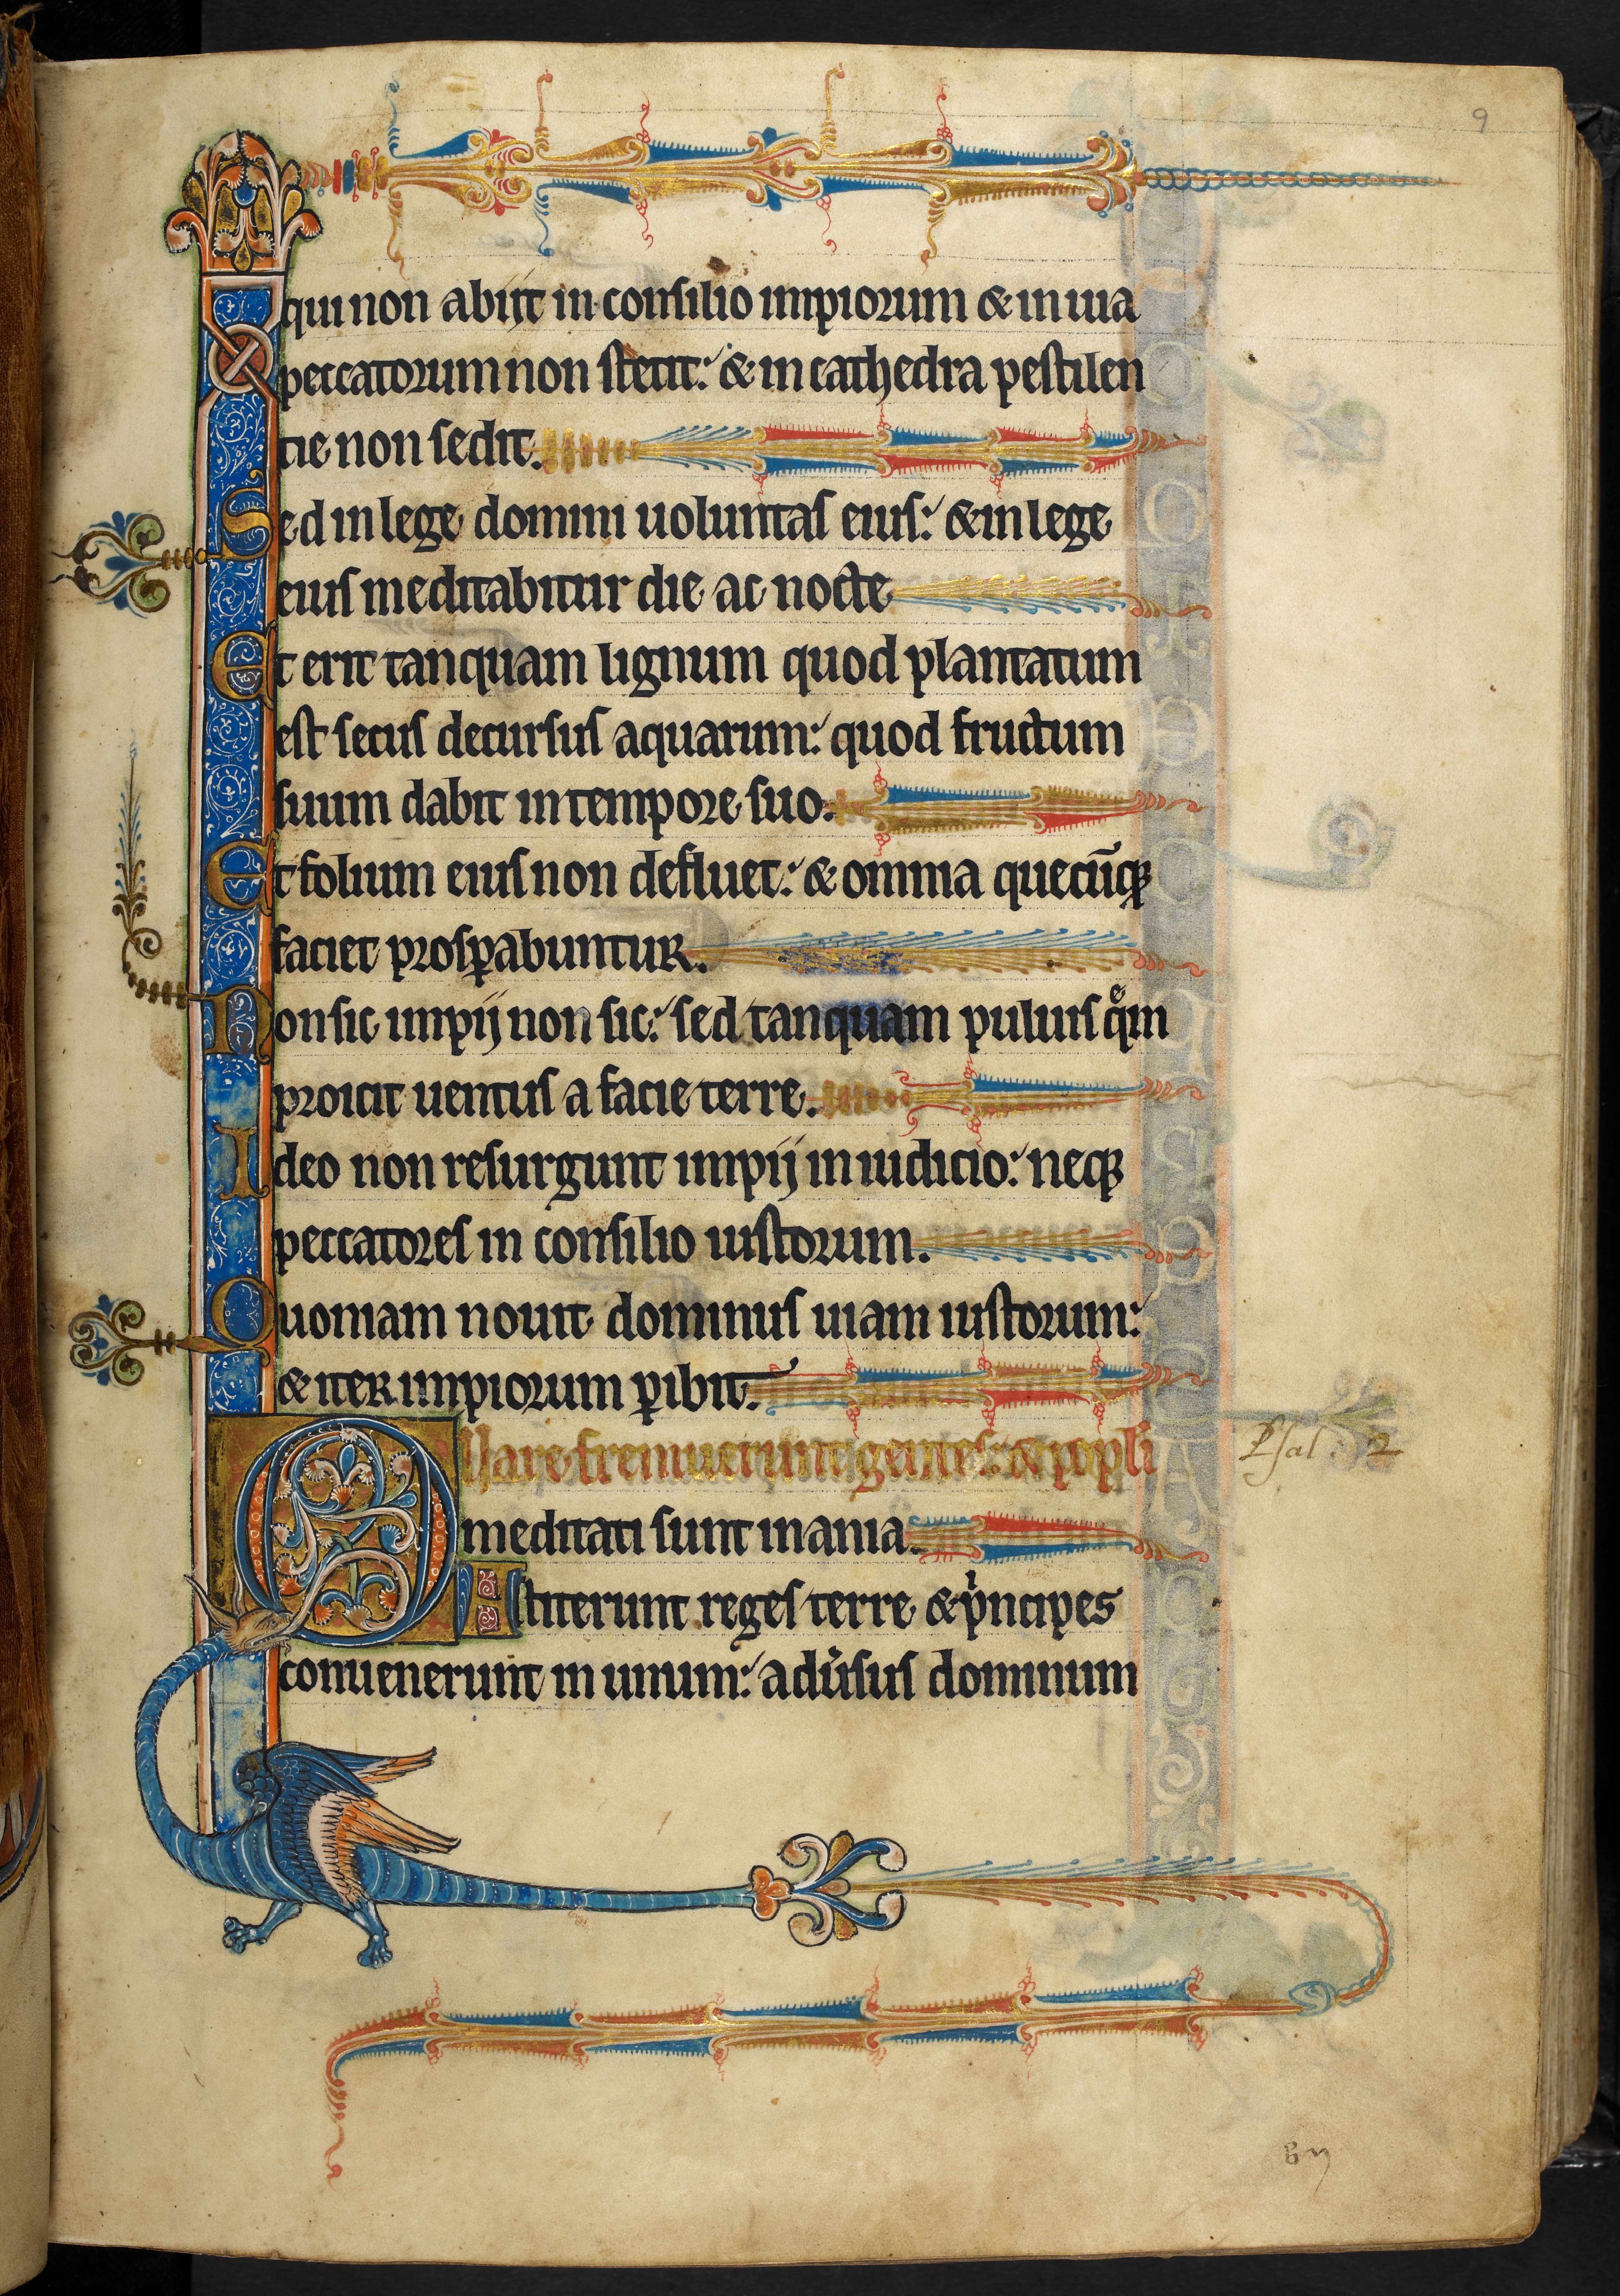 9
qui non abijt in consilio impiorum & in uia
peccatorum non stetit: & in cathedra pestilen
tie non sedit.
Sed in lege domini uoluntas eius: & in lege
eius meditabitur die ac nocte
Et erit tanquam lignum quod plantatum
est secus decursus aquarum: quod fructum
suum dabit in tempore suo.
Et folium eius non defluet: & omnia quecūqꝫ
faciet prosꝑabuntur.
Non sic impij non sic: sed tanquam puluis qͤm
proicit uentus a facie terre.
Ideo non resurgunt impij in iudicio: neqꝫ
peccatores in consilio iustorum.
Quoniam nouit dominus uiam iustorum:
& iter impiorum ꝑibit.
Quare fremuerunt gentes: & popl̓i
Psal: 2
meditati sunt inania.
Astiterunt reges terre & pͥncipes
conuenerunt in unum: adu̓sus dominum